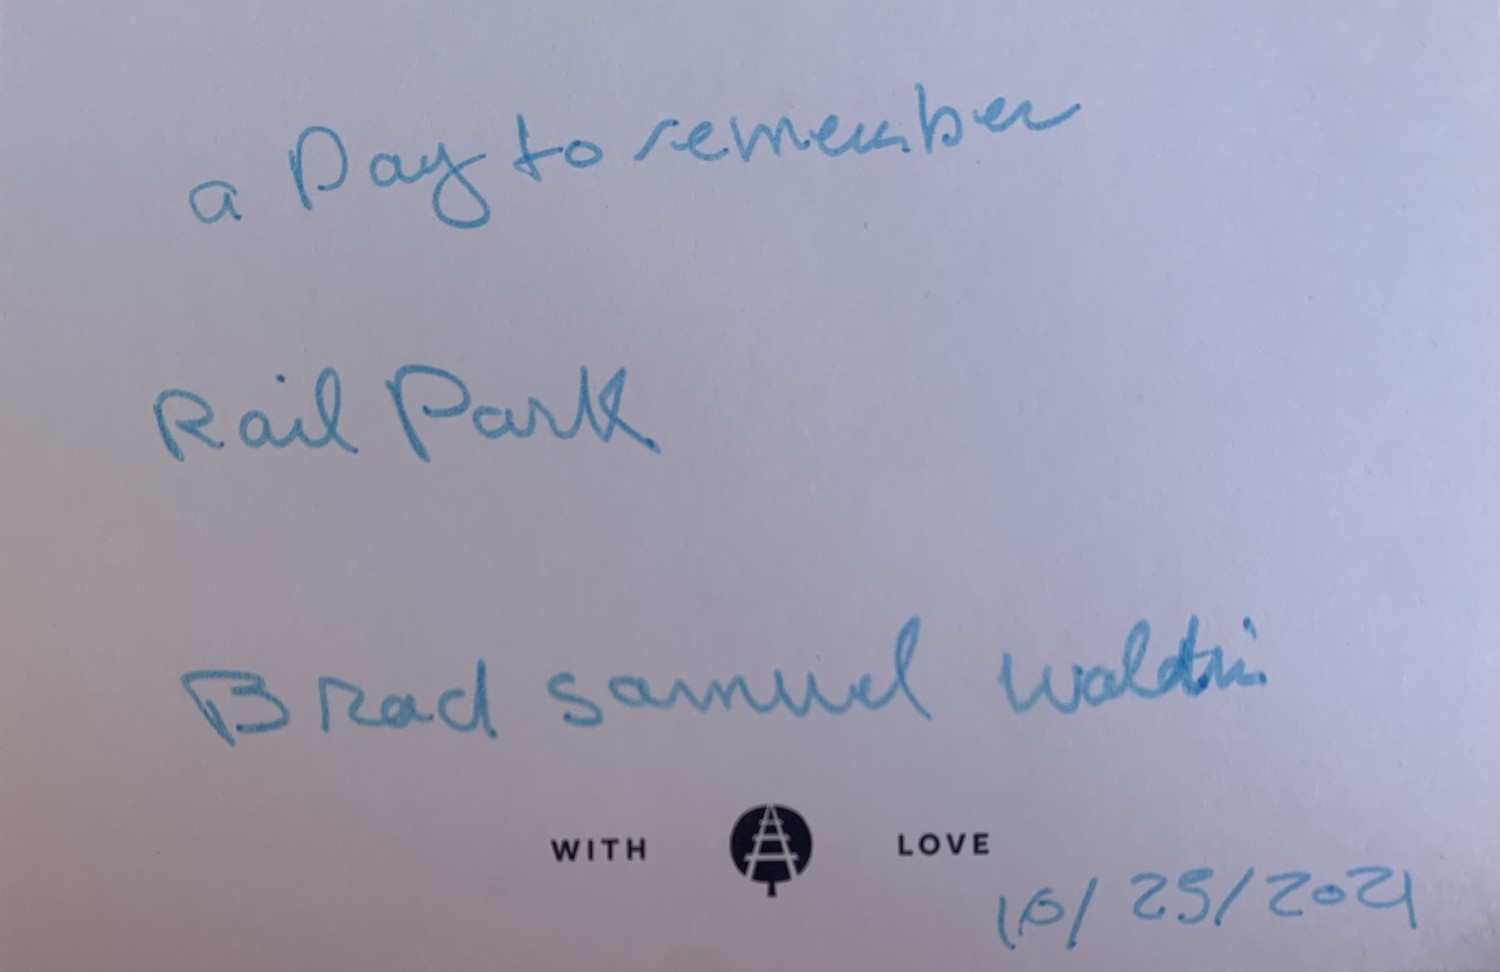 a Day to remember
Rail Park
Brad Samuel
WITH LOVE
10/25/2021